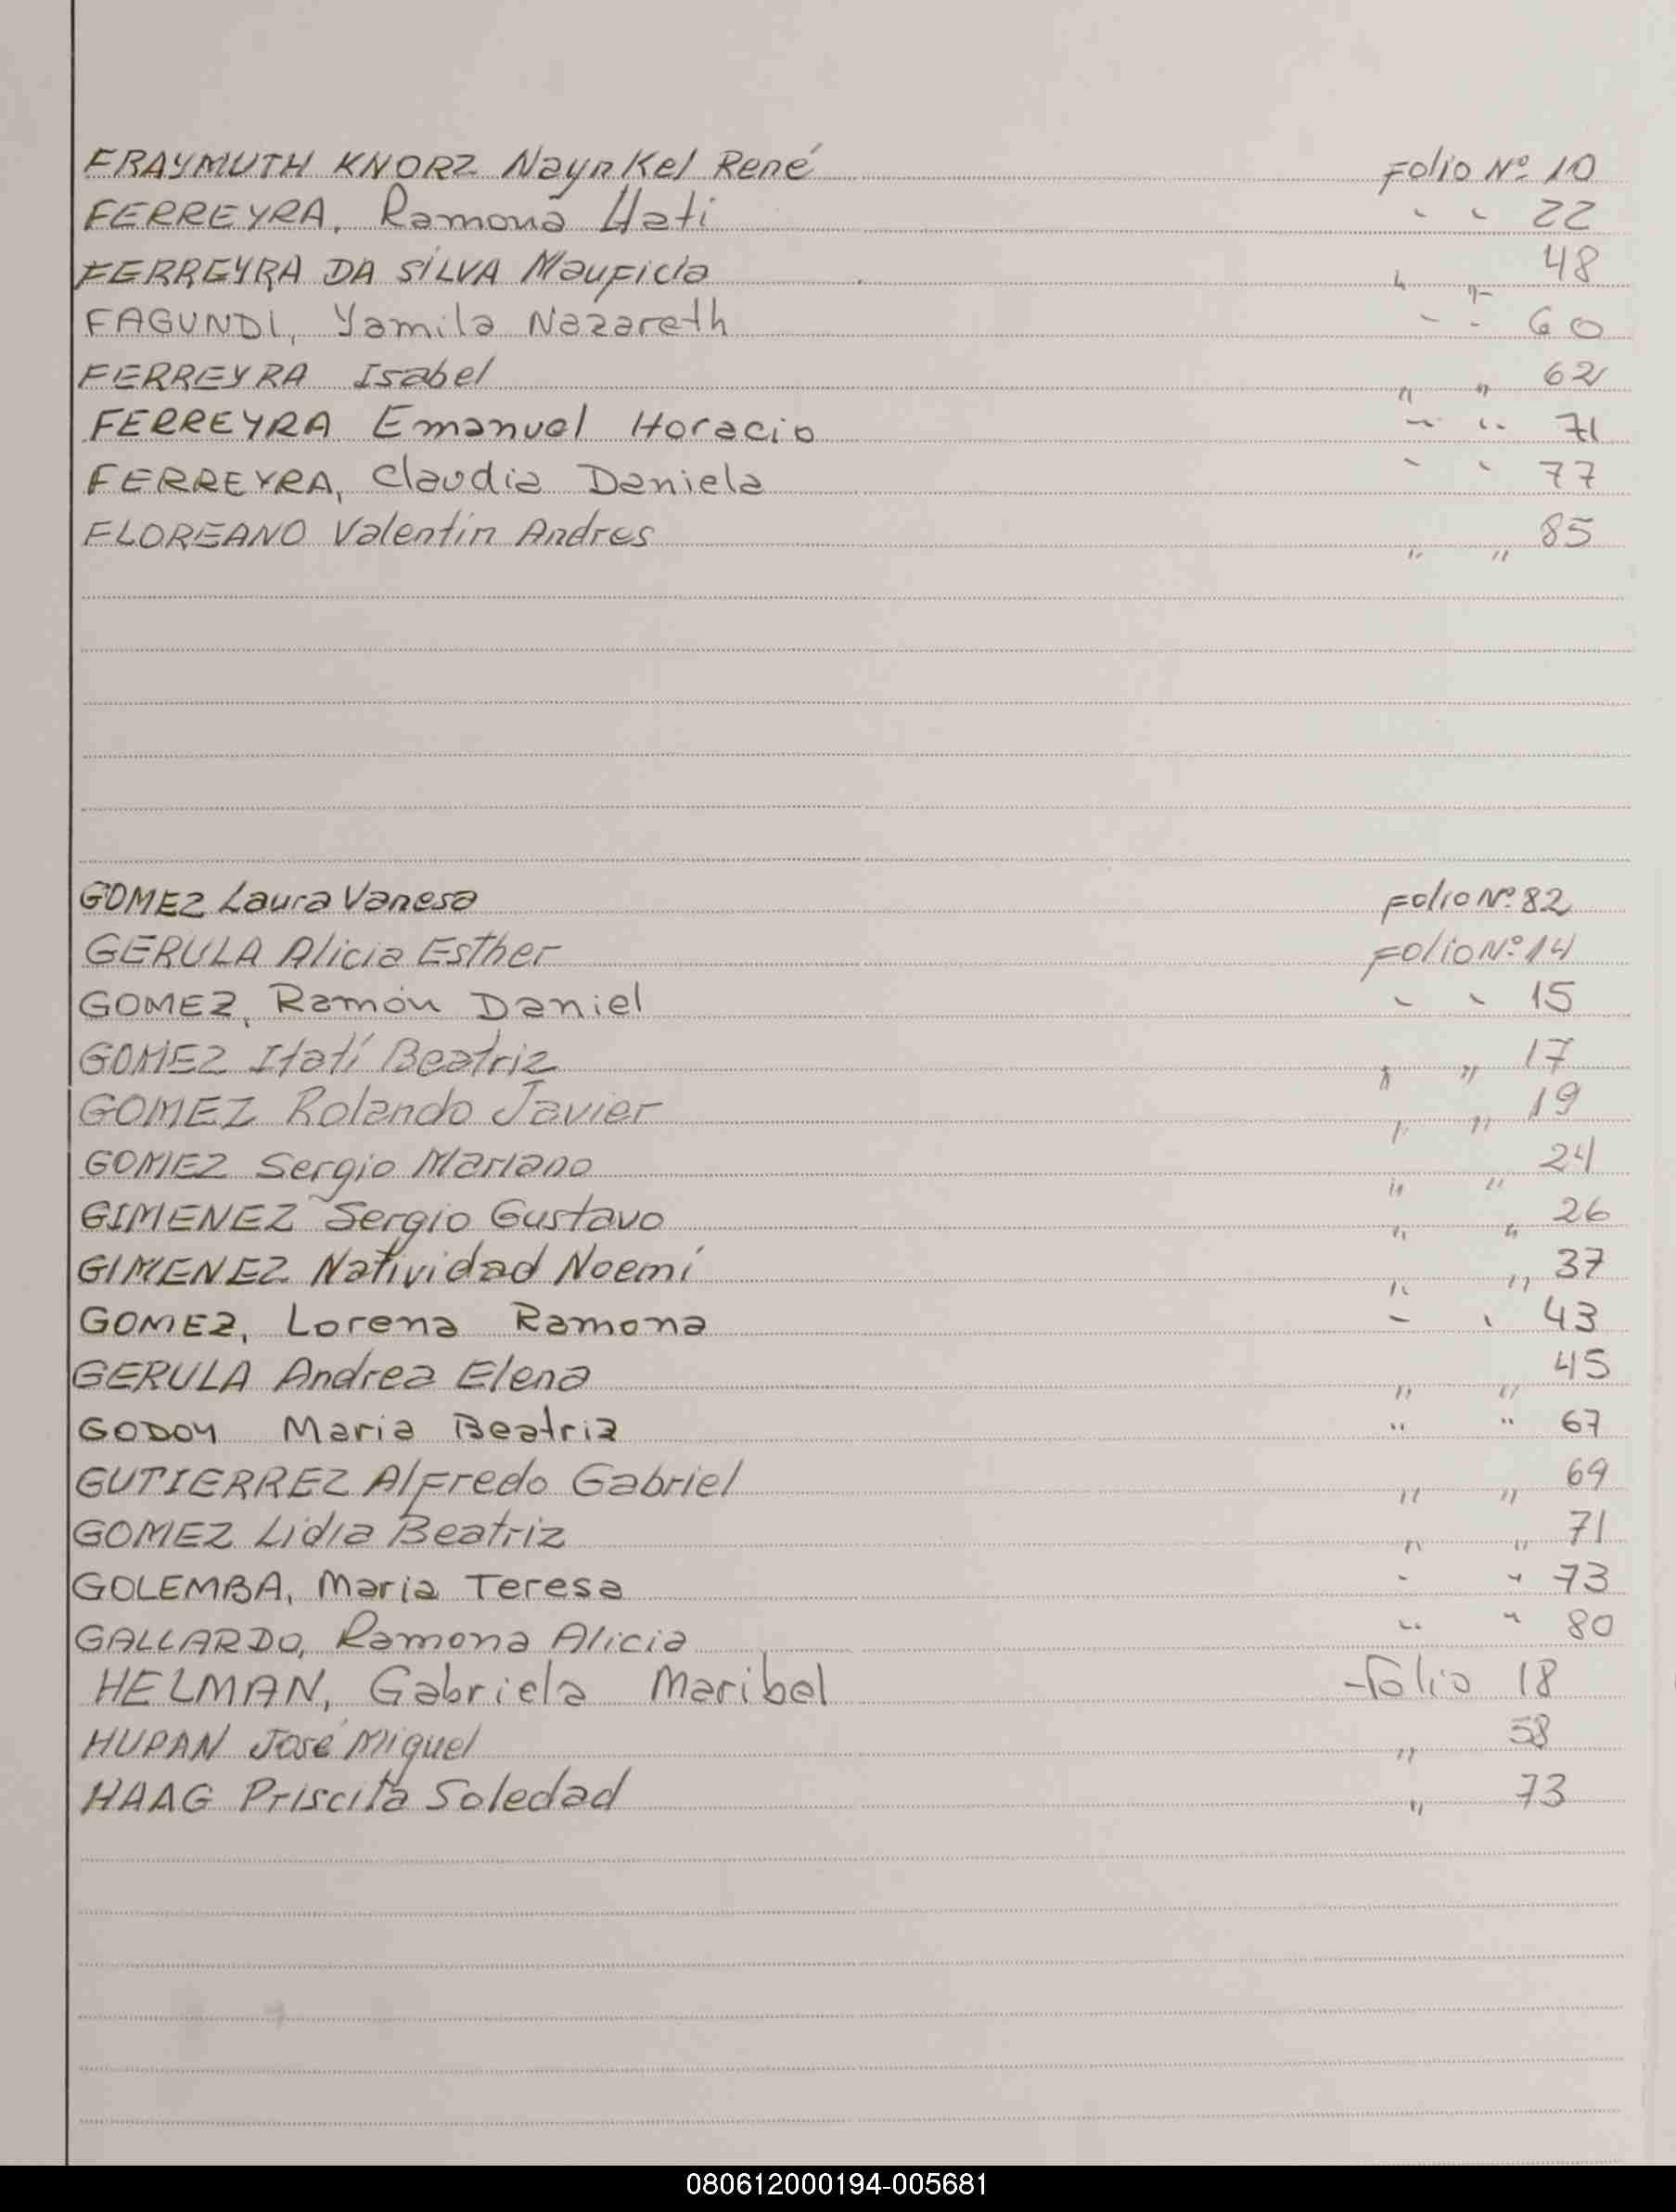 FRAYMUTH KNORZ Naynkel René Folio Nº 10
FERREYRA, Ramona Itati " " 22
FERREYRA DA SILVA Mauricia " " 48
FAGUNDI, Yamila Nazareth " " 60
FERREYRA Isabel " " 62
FERREYRA Emanuel Horacio " " 71
FERREYRA, Claudia Daniela " " 77
FLOREANO Valentin Andres " " 85
GOMEZ Laura Vanesa Folio Nº 82
GERULA Alicia Esther Folio Nº 14
GOMEZ, Ramón Daniel " " 15
GOMEZ Itatí Beatriz " " 17
GOMEZ Rolando Javier " " 19
GOMEZ Sergio Mariano " " 24
GIMENEZ Sergio Gustavo " " 26
GIMENEZ Natividad Noemí " " 37
GOMEZ, Lorena Ramona " " 43
GERULA Andrea Elena " " 45
GODOY Maria Beatriz " " 67
GUTIERREZ Alfredo Gabriel " " 69
GOMEZ Lidia Beatriz " " 71
GOLEMBA, Maria Teresa " " 73
GALLARDO, Ramona Alicia " " 80
HELMAN, Gabriela Maribel Folio 18
HUPAN José Miguel " 58
HAAG Priscila Soledad " 73
080612000194-005681